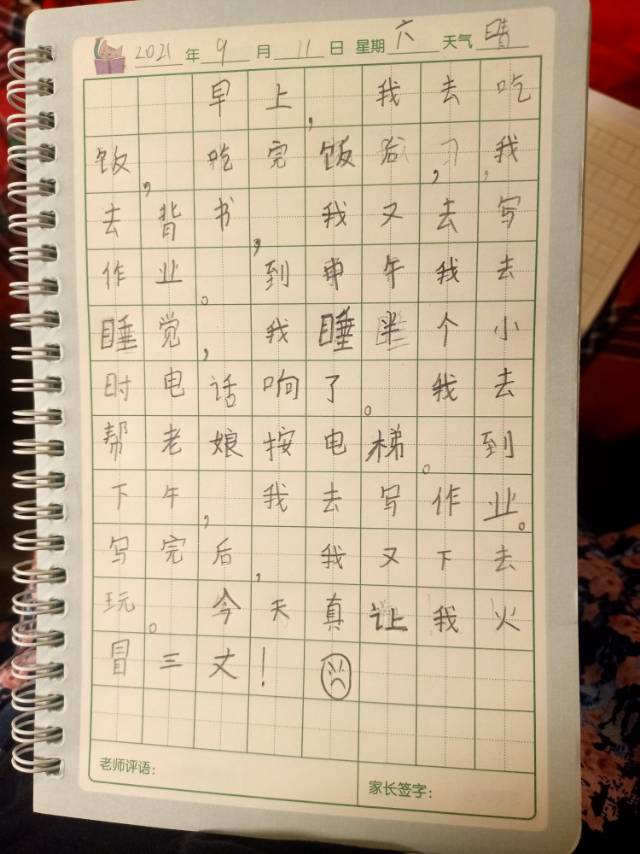 2021年9月11日 星期六 天气晴
早上，我去吃
饭，吃完饭后，我
去背书，我又去写
作业。到中午我去
睡觉，我睡半个小
时电话响了。我去
帮老娘按电梯。到
下午，我去写作业。
写完后，我又下去
玩。今天真让我火
冒三丈！
老师评语：
家长签字：